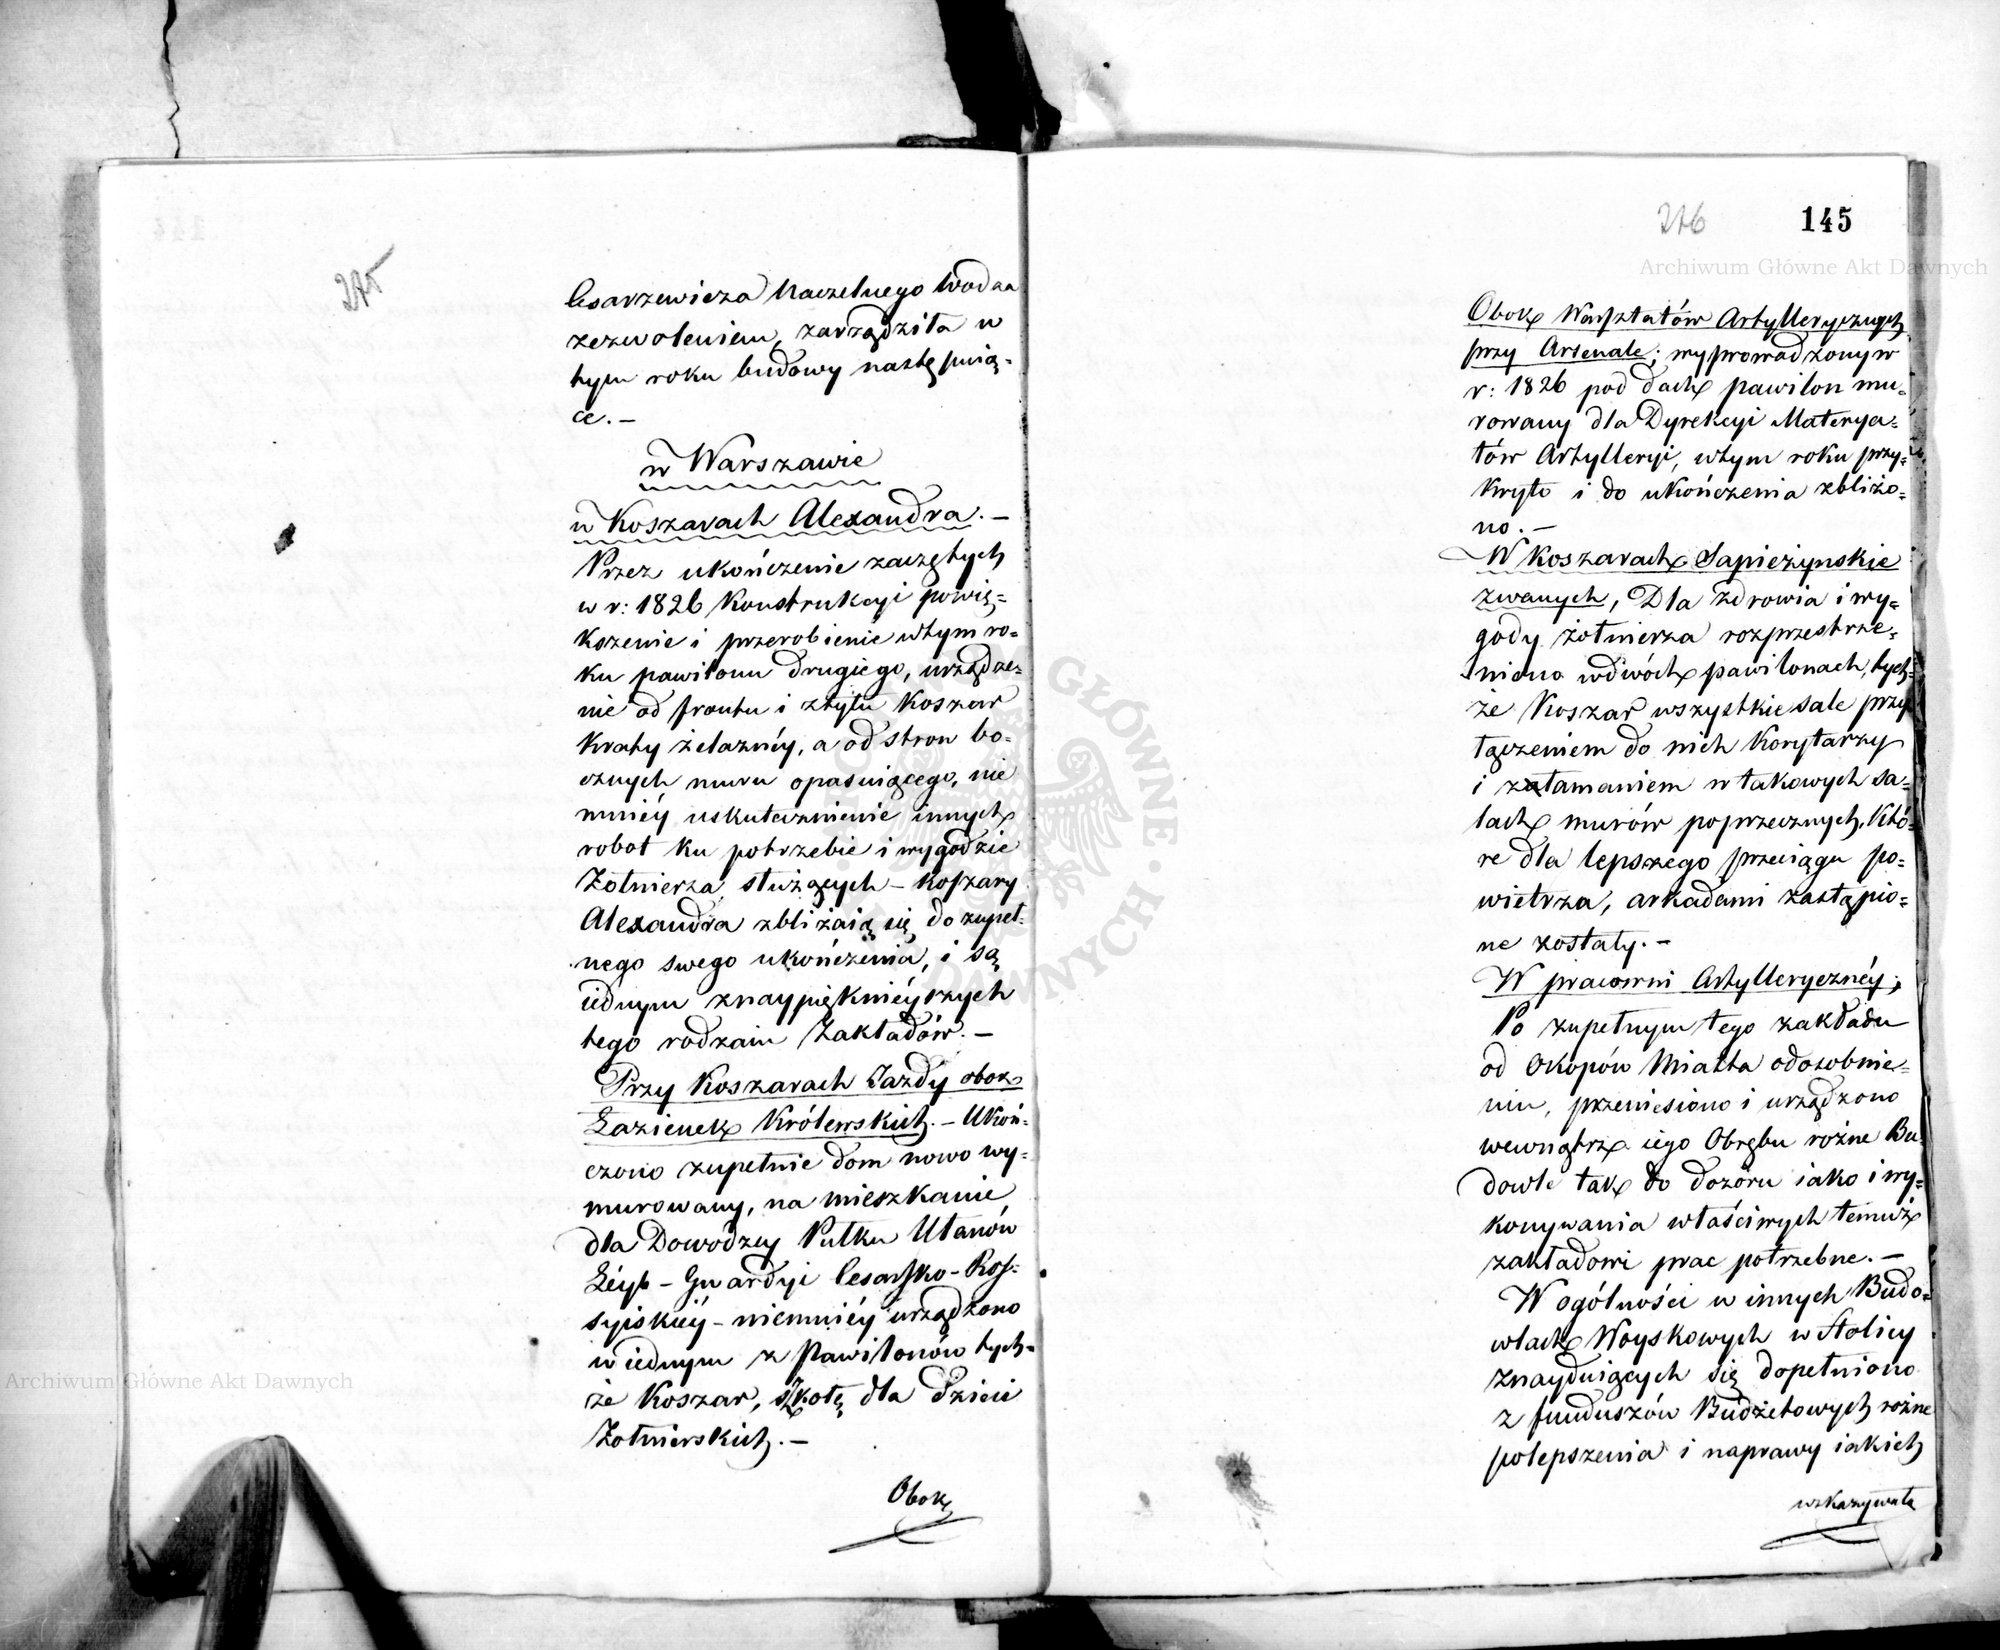 275
Cesarzewicza Naczelnego Wodza
zezwoleniem, zarządziła w
tym roku budowy następuią=
ce. –
w Warszawie
w Koszarach Alexandra. –
Przez ukończenie zaczętych
w r: 1826 Konstrukcyi powię=
kszenie i przerobienie wtym ro=
ku pawilonu drugiego, urządze=
nie od frontu i ztyłu Koszar
Kraty żelaznéy, a od stron bo=
cznych muru opasuiącego, nie
mniéy uskutecznienie innych
robot ku potrzebie i wygodzie
Żołnierza służących – Koszary
Alexandra zbliżaią się do zupeł=
nego swego ukończenia, i są
iednym znaypięknieyszych
tego rodzaiu Zakładów. –
Przy Koszarach Jazdy obok
Łazienek Królewskich. – Ukoń=
czono zupełnie dom nowo wy=
murowany, na mieszkanie
dla Dowódzcy Pułku Ułanów
Léyb – Gwardyi Cesarsko – Ros=
syiskiéy – niemniéy urządzono
w iednym z Pawilonów tych=
że Koszar, szkołę dla Dzieci
Żołnierskich. –
Obok
276
145
Archiwum Główne Akt Dawnych
Obok Warsztatów Artyllerycznych
przy Arsenale; wyprowadzony w
r: 1826 pod dach pawilon mu=
rowany dla Dyrekcyi Materya=
łów Artylleryi, wtym roku przy=
kryto i do ukończenia zbliżo=
no. –
W Koszarach Sapieżynskie
zwanych, Dla zdrowia i wy=
gody żołnierza rozprzestrze=
niono wdwóch pawilonach, tych=
że Koszar wszystkie sale przy
łączeniem do nich Korytarzy
i załamaniem w takowych sa=
lach murów poprzecznych, Któ=
re dla lepszego przeciągu po=
wietrza, arkadami zastąpio=
ne zostały. –
W pracowni Artylleryczney;
Po zupełnym tego zakładu
od Okopów Miasta odosobnie=
niu, przeniesiono i urządzono
wewnątrz iego Obrębu rożne Bu=
dowle tak do dozoru iako i wy=
konywania właściwych temuż
zakładowi prac potrzebne. –
W ogólności w innych Budo=
wlach Woyskowych w Stolicy
znayduiących się dopełniono
z funduszów Budżetowych rożne
polepszenia i naprawy iakich
wskazywała
Archiwum Główne Akt Dawnych
GŁÓWNE · DAWNYCH